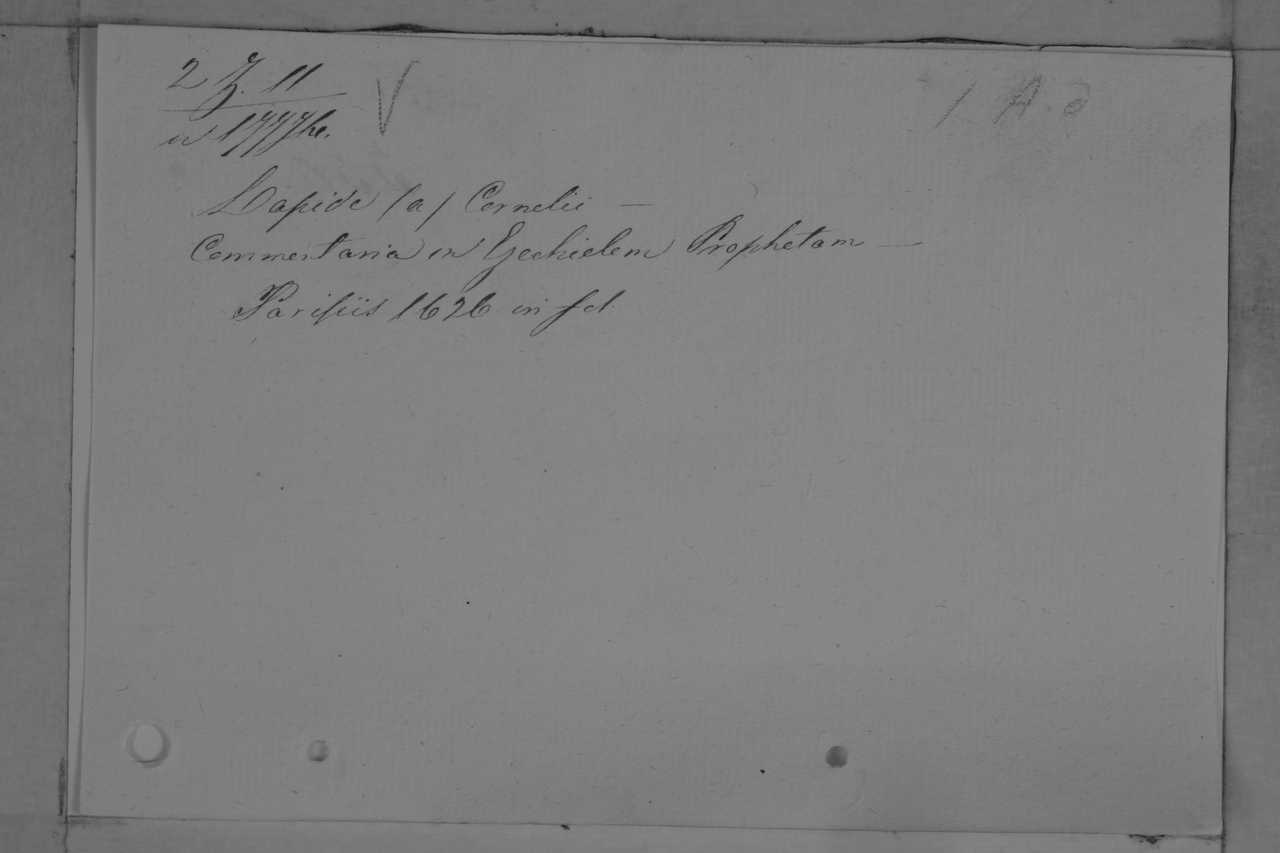 2 Z. 11
V
1 A. d
Lapide (a) Cornelii —
Commentaria in Ezechielem Prophetam —
Parisiis 1626 in fol